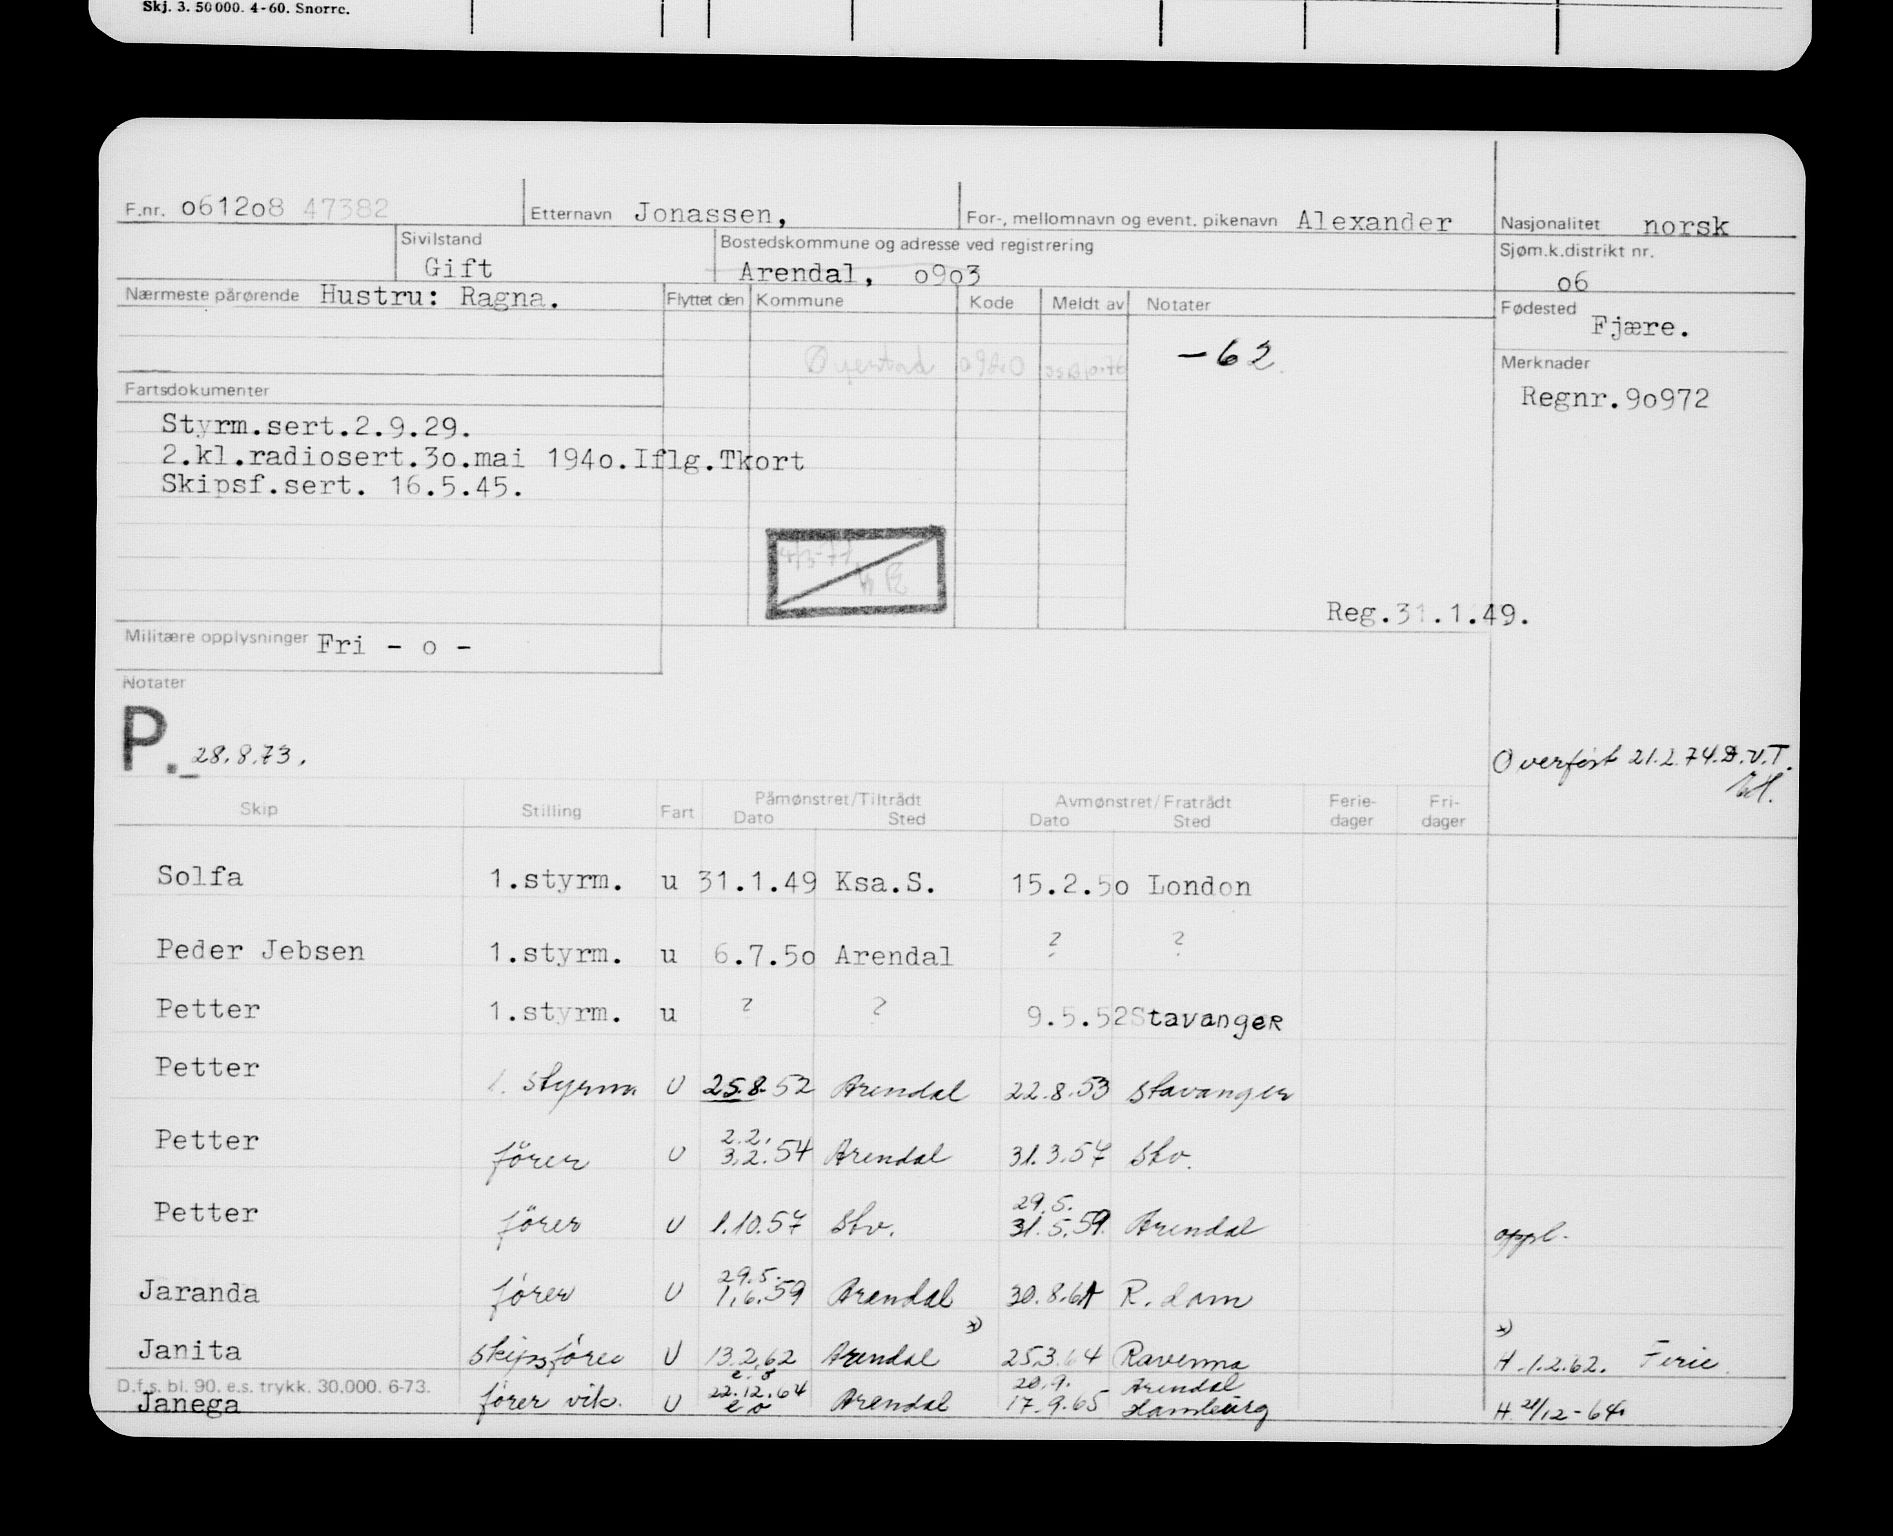 Skj. 3. 50 000. 4-60. Snorre.
F.nr. 061208 47382 Etternavn Jonassen, For-, mellomnavn og event. pikenavn Alexander Nasjonalitet norsk
Sivilstand Gift Bostedskommune og adresse ved registrering Arendal, 0903 Sjøm.k.distrikt nr. 06
Nærmeste pårørende Hustru: Ragna. Flyttet den Kommune Kode Meldt av Notater Fødested Fjære.
Øyestad 0920
-62
Merknader
Fartsdokumenter
Regnr.90972
Styrm.sert.2.9.29.
2.kl.radiosert.30.mai 1940.Iflg.Tkort
Skipsf.sert. 16.5.45.
4/3-77
Reg.31.1.49.
Militære opplysninger Fri - o -
Notater
P. 28.8.73.
Overført 21.2.74.D.V.T.
Skip Stilling Fart Påmønstret/Tiltrådt Dato Sted Avmønstret/Fratrådt Dato Sted Ferie-dager Fri-dager
Solfa 1.styrm. u 31.1.49 Ksa.S. 15.2.50 London
Peder Jebsen 1.styrm. u 6.7.50 Arendal ? ?
Petter 1.styrm. u ? ? 9.5.52 Stavanger
Petter 1. styrm U 25.8.52 Arendal 22.8.53 Stavanger
Petter fører U 2.2. 3.2.54 Arendal 31.3.57 Stv.
Petter fører U 1.10.57 Stv. 29.5. 31.5.59. Arendal oppl.
Jaranda fører U 29.5. 1.6.59 Arendal 30.8.61 R.dam
Janita skipsfører U 13.2.62 Arendal x) 25.3.64 Ravenna x) H. 1.2.62. Ferie.
D.f.s. bl. 90. e.s. trykk. 30.000. 6-73.
Janega fører vik. U 22.12.64 Arendal 20.9. Arendal 17.9.65 Hamburg H. 21/12-64